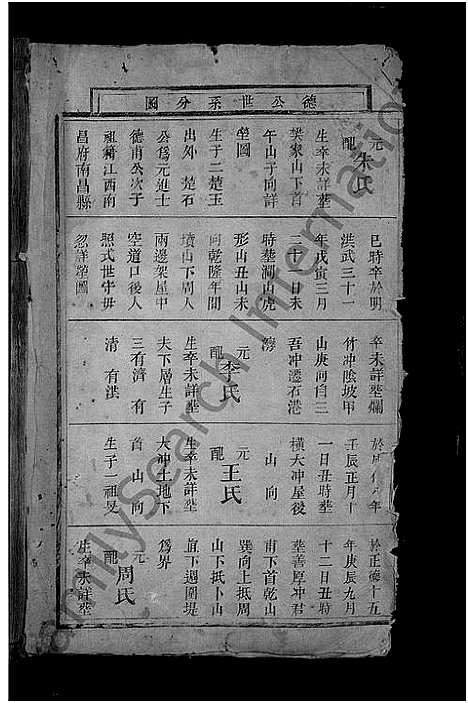 德公世系分圖
元配朱氏
生卒未詳塟
樊家山下首
午山子向詳
塋圖
生子二楚玉
出外 楚石
公爲元進士
德甫公次子
祖籍江西南
昌府南昌縣
巳時卒於明
洪武三十一
年戊寅三月
二十八日未
時塟澗山虎
形山丑山未
向乾隆年間
墳山下周人
兩邊架屋中
空道口後人
照式世守毋
忽詳塋圖
卒未詳塟爛
竹冲陰坡甲
山庚向自三
吾冲遷石港
灣
元配李氏
生卒未詳塟
夫下層生子
三有濟 有
清 有洪
年
壬辰正月十
一日丑時塟
橫大冲屋後
山 向
元配王氏
生卒未詳塟
大冲土地下
首 山 向
生子一祖旻
於正德十五
年庚辰九月
十二日丑時
塟善厚冲君
甫下首乾山
巽向上抵周
山下抵卜山
直下過圍堤
爲界
元配周氏
生卒未詳塟
FamilySearch International